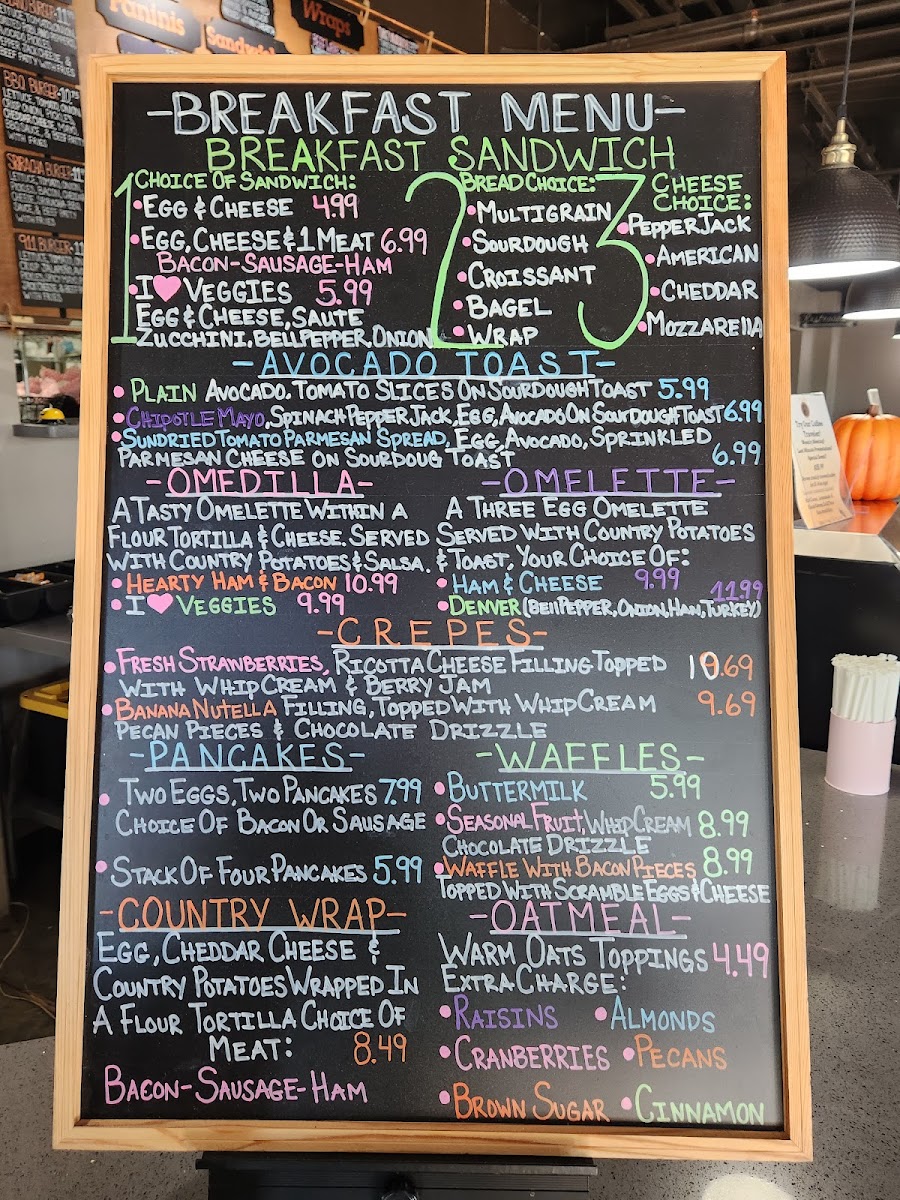 Paninis
Sandwich
Wraps
BBQ BURGER
SRIRACHA BURGER
911 BURGER
-BREAKFAST MENU-
BREAKFAST SANDWICH
1 CHOICE OF SANDWICH:
•EGG & CHEESE 4.99
•EGG, CHEESE & 1 MEAT 6.99
BACON-SAUSAGE-HAM
•I ♥ VEGGIES 5.99
EGG & CHEESE, SAUTE
ZUCCHINI, BELLPEPPER, ONION
2 BREAD CHOICE:
•MULTIGRAIN
•SOURDOUGH
•CROISSANT
•BAGEL
•WRAP
3 CHEESE
CHOICE:
•PEPPER JACK
•AMERICAN
•CHEDDAR
•MOZZARELLA
-AVOCADO TOAST-
• PLAIN AVOCADO, TOMATO SLICES ON SOURDOUGH TOAST 5.99
•CHIPOTLE MAYO, SPINACH PEPPER JACK, EGG, AVOCADO ON SOURDOUGH TOAST 6.99
•SUNDRIED TOMATO PARMESAN SPREAD, EGG, AVOCADO, SPRINKLED
PARMESAN CHEESE ON SOURDOUG TOAST 6.99
-OMEDILLA-
A TASTY OMELETTE WITHIN A
FLOUR TORTILLA & CHEESE. SERVED
WITH COUNTRY POTATOES & SALSA.
•HEARTY HAM & BACON 10.99
•I ♥ VEGGIES 9.99
-OMELETTE-
A THREE EGG OMELETTE
SERVED WITH COUNTRY POTATOES
& TOAST, YOUR CHOICE OF:
•HAM & CHEESE 9.99
11.99
•DENVER (BELLPEPPER, ONION, HAM, TURKEY)
-CREPES-
•FRESH STRAWBERRIES, RICOTTA CHEESE FILLING TOPPED 10.69
WITH WHIP CREAM & BERRY JAM
•BANANA NUTELLA FILLING, TOPPED WITH WHIP CREAM 9.69
PECAN PIECES & CHOCOLATE DRIZZLE
-PANCAKES-
• TWO EGGS, TWO PANCAKES 7.99
CHOICE OF BACON OR SAUSAGE
• STACK OF FOUR PANCAKES 5.99
-WAFFLES-
•BUTTERMILK 5.99
•SEASONAL FRUIT, WHIP CREAM 8.99
CHOCOLATE DRIZZLE
•WAFFLE WITH BACON PIECES 8.99
TOPPED WITH SCRAMBLE EGGS & CHEESE
-COUNTRY WRAP-
EGG, CHEDDAR CHEESE &
COUNTRY POTATOES WRAPPED IN
A FLOUR TORTILLA CHOICE OF
MEAT: 8.49
BACON-SAUSAGE-HAM
-OATMEAL-
WARM OATS TOPPINGS 4.49
EXTRA CHARGE:
•RAISINS •ALMONDS
•CRANBERRIES •PECANS
•BROWN SUGAR •CINNAMON